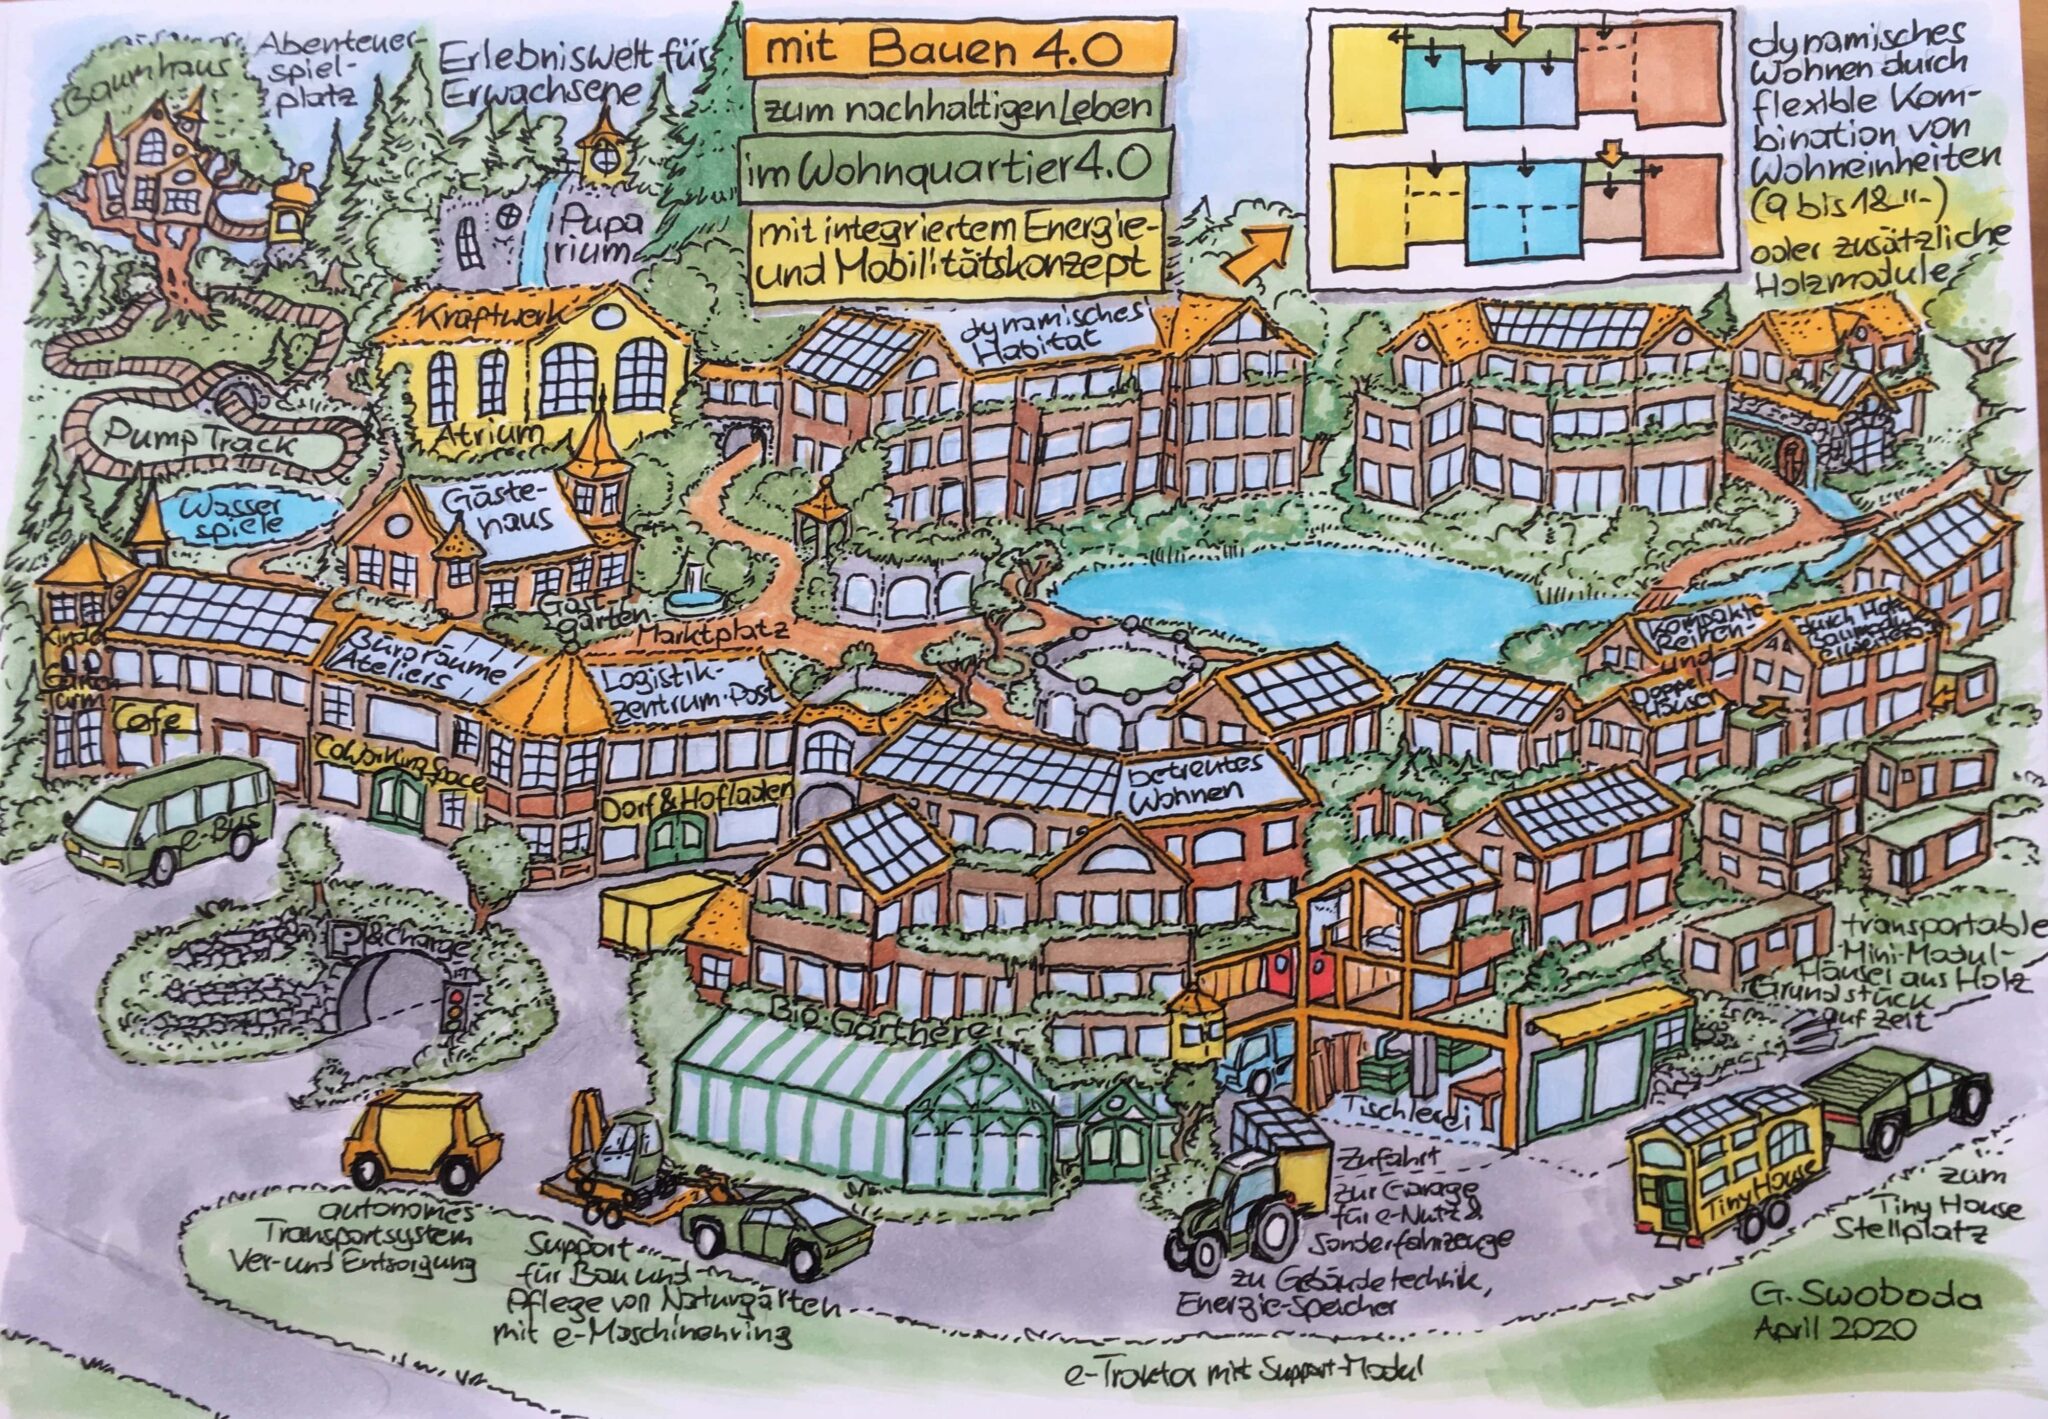 Baumhaus
Abenteuer-
spiel-
platz
Erlebniswelt für
Erwachsene
mit Bauen 4.0
zum nachhaltigen Leben
im Wohnquartier 4.0
mit integriertem Energie-
und Mobilitätskonzept
dynamisches
Wohnen durch
flexible Kom-
bination von
Wohneinheiten
(9 bis 18 "-)
oder zusätzliche
Holzmodule
Pupa
rium
Kraftwerk
Atrium
dynamisches
Habitat
Pump Track
Wasser
spiele
Gäste-
haus
Gast
garten
Marktplatz
Kinder
Garten
Turm
Cafe
Büroräume
Ateliers
Logistik-
zentrum-Post
Coworking Space
Dorf & Hofladen
e-Bus
betreutes
Wohnen
kompakte
Reihen-
und
Doppel
häuser
durch Holz
baumodule
erweiterbar
P & Charge
Bio Gärtnerei
Tischlerei
transportable
Mini-Modul-
Häuser aus Holz
Grundstück
auf Zeit
Tiny House
zum
Tiny House
Stellplatz
autonomes
Transportsystem
Ver- und Entsorgung
Support
für Bau und
Pflege von Naturgärten
mit e-Maschinenring
Zufahrt
zur Garage
für e-Nutz &
Sonderfahrzeuge
zu Gebäudetechnik,
Energie-Speicher
e-Traktor mit Support-Modul
G. Swoboda
April 2020